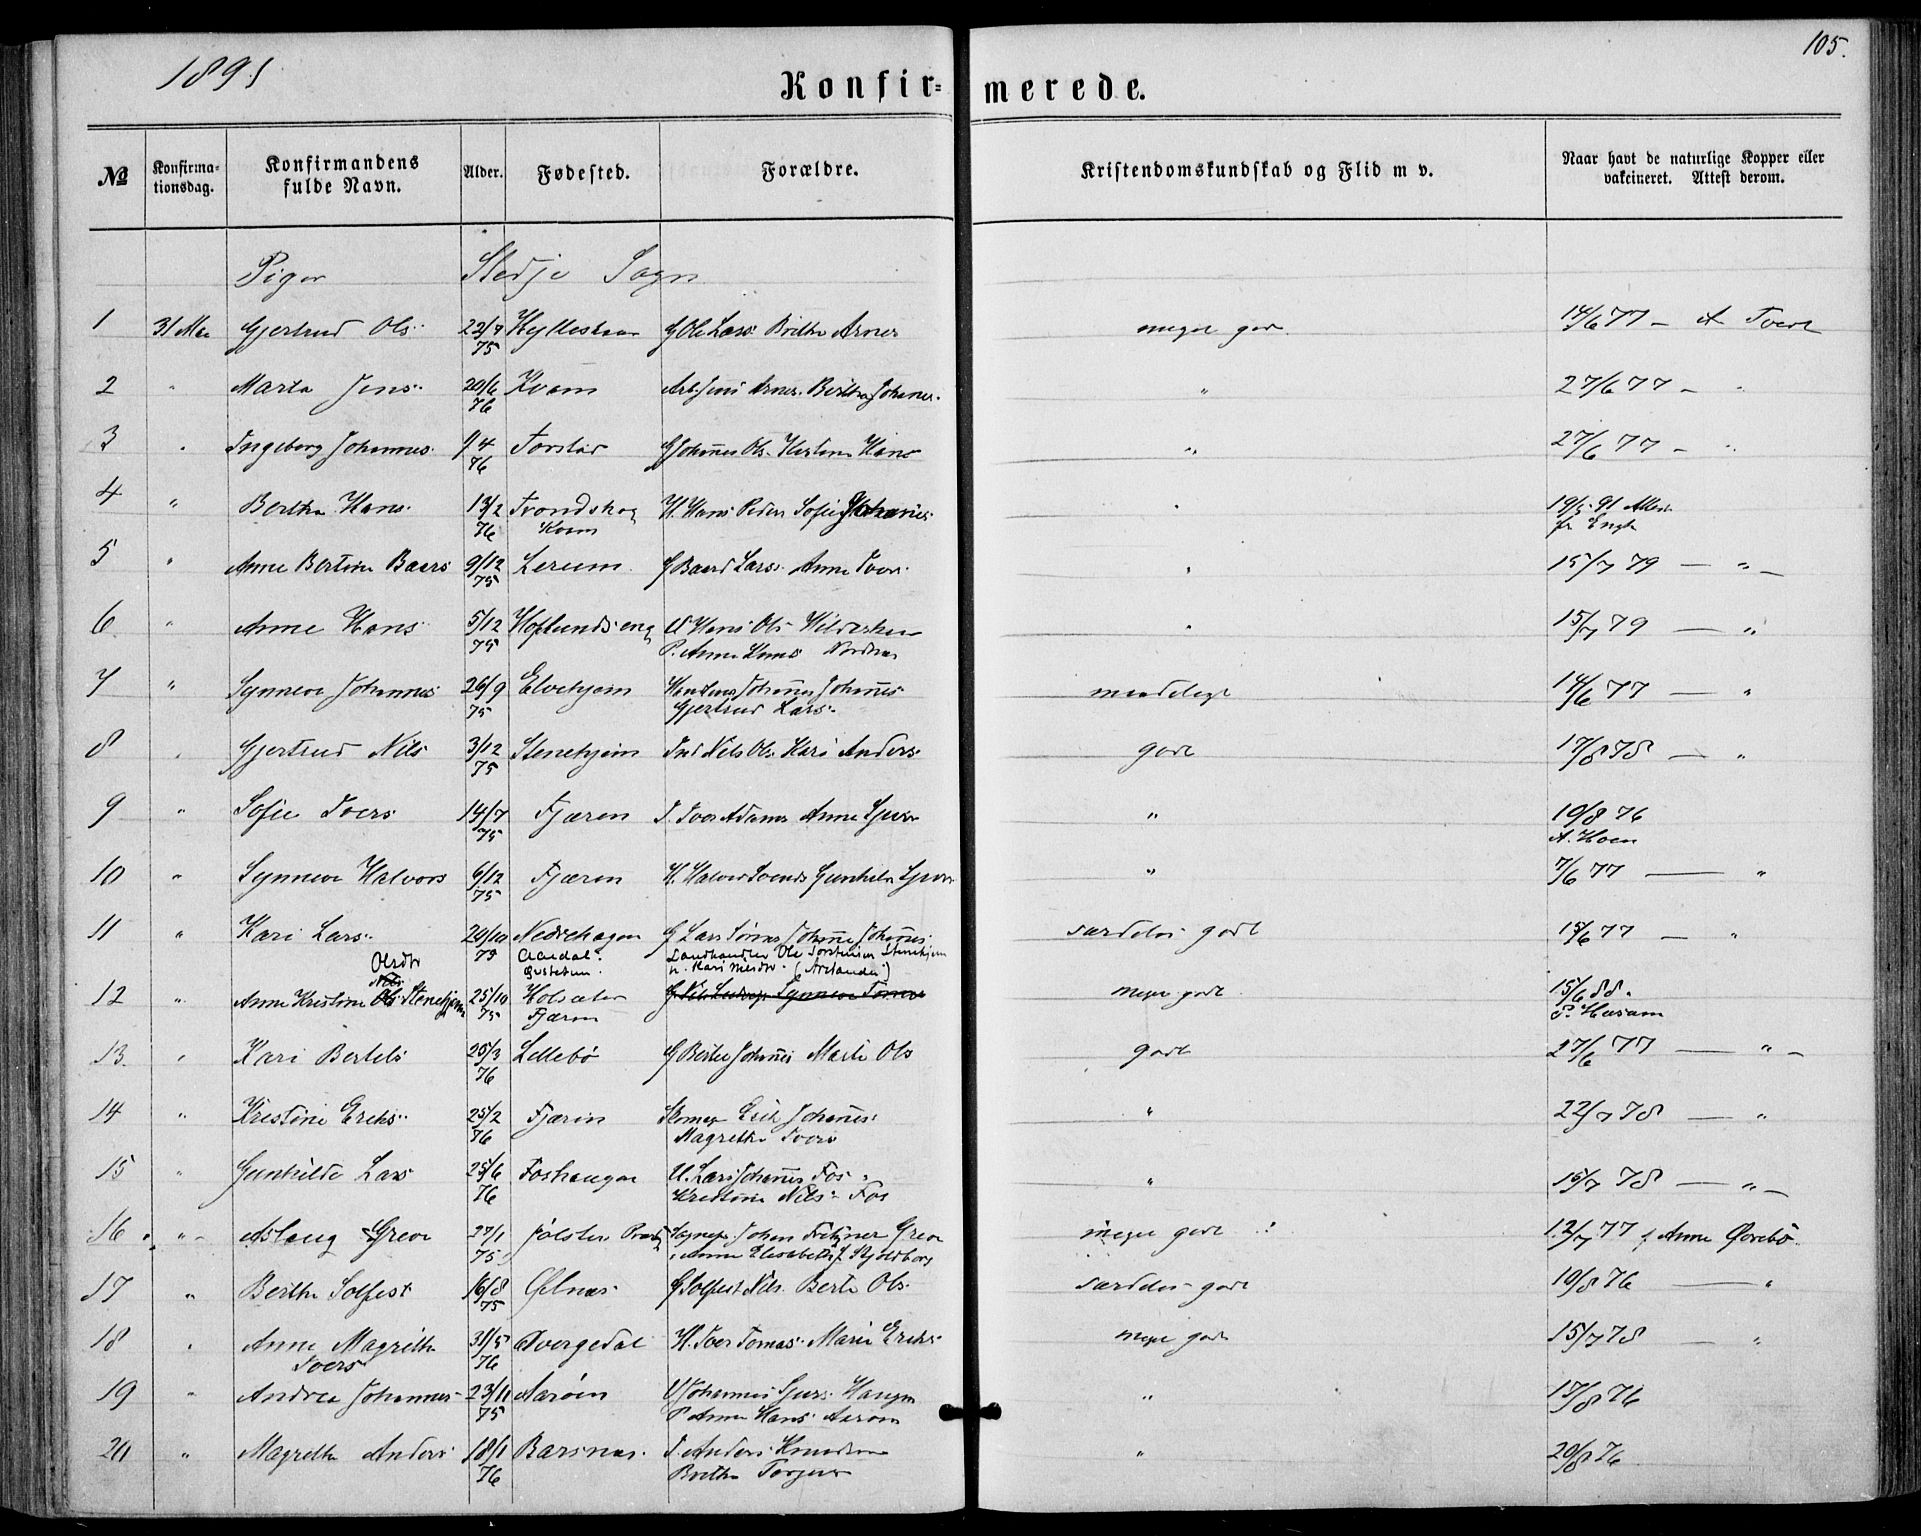 1891
105.
Konfir= merede.
№ Konfirma- tionsdag. Konfirmandens fulde Navn. Alder. Fødested. Forældre. Kristendomskundskab og Flid m v. Naar havt de naturlige Kopper eller vakcineret. Attest derom.
Piger Stedje Sogn
1 31 Mai Gjertrud Ols. 22/7 75 G Ole Lars. Brithe Arnes meget godt. 14/6 77 — A Tvedt
2 " Marta Jens. 20/6 76 Kvam Arb. Jens Arnes. Brithe Johannes. " 27/6 77 — "
3 " Ingeborg Johannes. 1/4 76 G Johannes Ols. Kristine Hans " 27/6 77 — "
4 " Berthe Hans. 13/2 76 Trondskog Kvam H. Hans Peders Sofie Johannes. " 19/5 91 Attest fr Engh
5 " Anne Bertine Baars 9/12 75 Lerum. G Baard Lars. Anne Ivers. " 15/7 79 — " —
6 " Anne Hans 5/12 75 Hoplandseng U Hans Ols
P. Anne Hans Nordnæs " 15/7 79 — "
7 " Synneve Johannes 26/9 75 Elvehjem Johannes Johannes.
Gjertrud Lars. maadeligt 14/6 77 — "
8 " Gjertrud Nils 3/12 75 Stenehjem Ind Nils Ols. Kari Anders. godt 17/8 78 — "
9 " Sofie Ivers 14/7 75 Fjæren I. Iver Adams Anne Sjurs " 19/8 76
A. Hoen
10 " Synneve Halvors 6/12 75 Fjæren H. Halvor Svends Gunhild Sjurs " 7/6 77 — "
11 " Kari Lars. 24/10 75 Nedrehagen G Lars Johanne Johannes. særdeles godt 15/6 77 — "
Olsdtr Aardal. Landhandler Ole Torstensen Stenehjem
12 " Anne Kristine Stenehjem 25/10 75 Holsæter Fjæren meget godt. 15/6 88.
13. " Kari Bertels 25/3 76 Lillebø G Bertel Johannes Marte Ols godt 27/6 77 — " —
14 " Kristine Eriks. 25/2 76 Fjæren Skomag Erik Johannes.
Magrethe Ivers " 22/7 78 — "
15 " Gunhilde Lars 25/6 76 Foshaugen U. Lars Johannes Fos.
Kristine Nils. Fos " 15/7 78 — " —
16 " Aslaug Greve 27/1 75 Jølster Sognepr Johan Fritzner Greve
Anne Elisabeth f. Kjoldborg meget godt. 12/7 77 f Anne Øvrebø
17 " Berthe Solfest 16/8 75 Ølnæs G Solfest Nils. Berte Ols. særdeles godt 19/8 76 — "
18 " Anne Magrethe Ivers 31/5 76 Dvergedal H. Iver Tomas. Marie Eriks. meget godt 15/7 78 — "
19 " Andrea Johannes. 23/11 75 Aarøen U Johannes Sjurs. Haugen
P Anne Hans. Aarøen " 17/8 76
20 " Magrethe Anders 18/1 76 Barsnes. I. Anders Knudsen
Brithe " 20/8 76